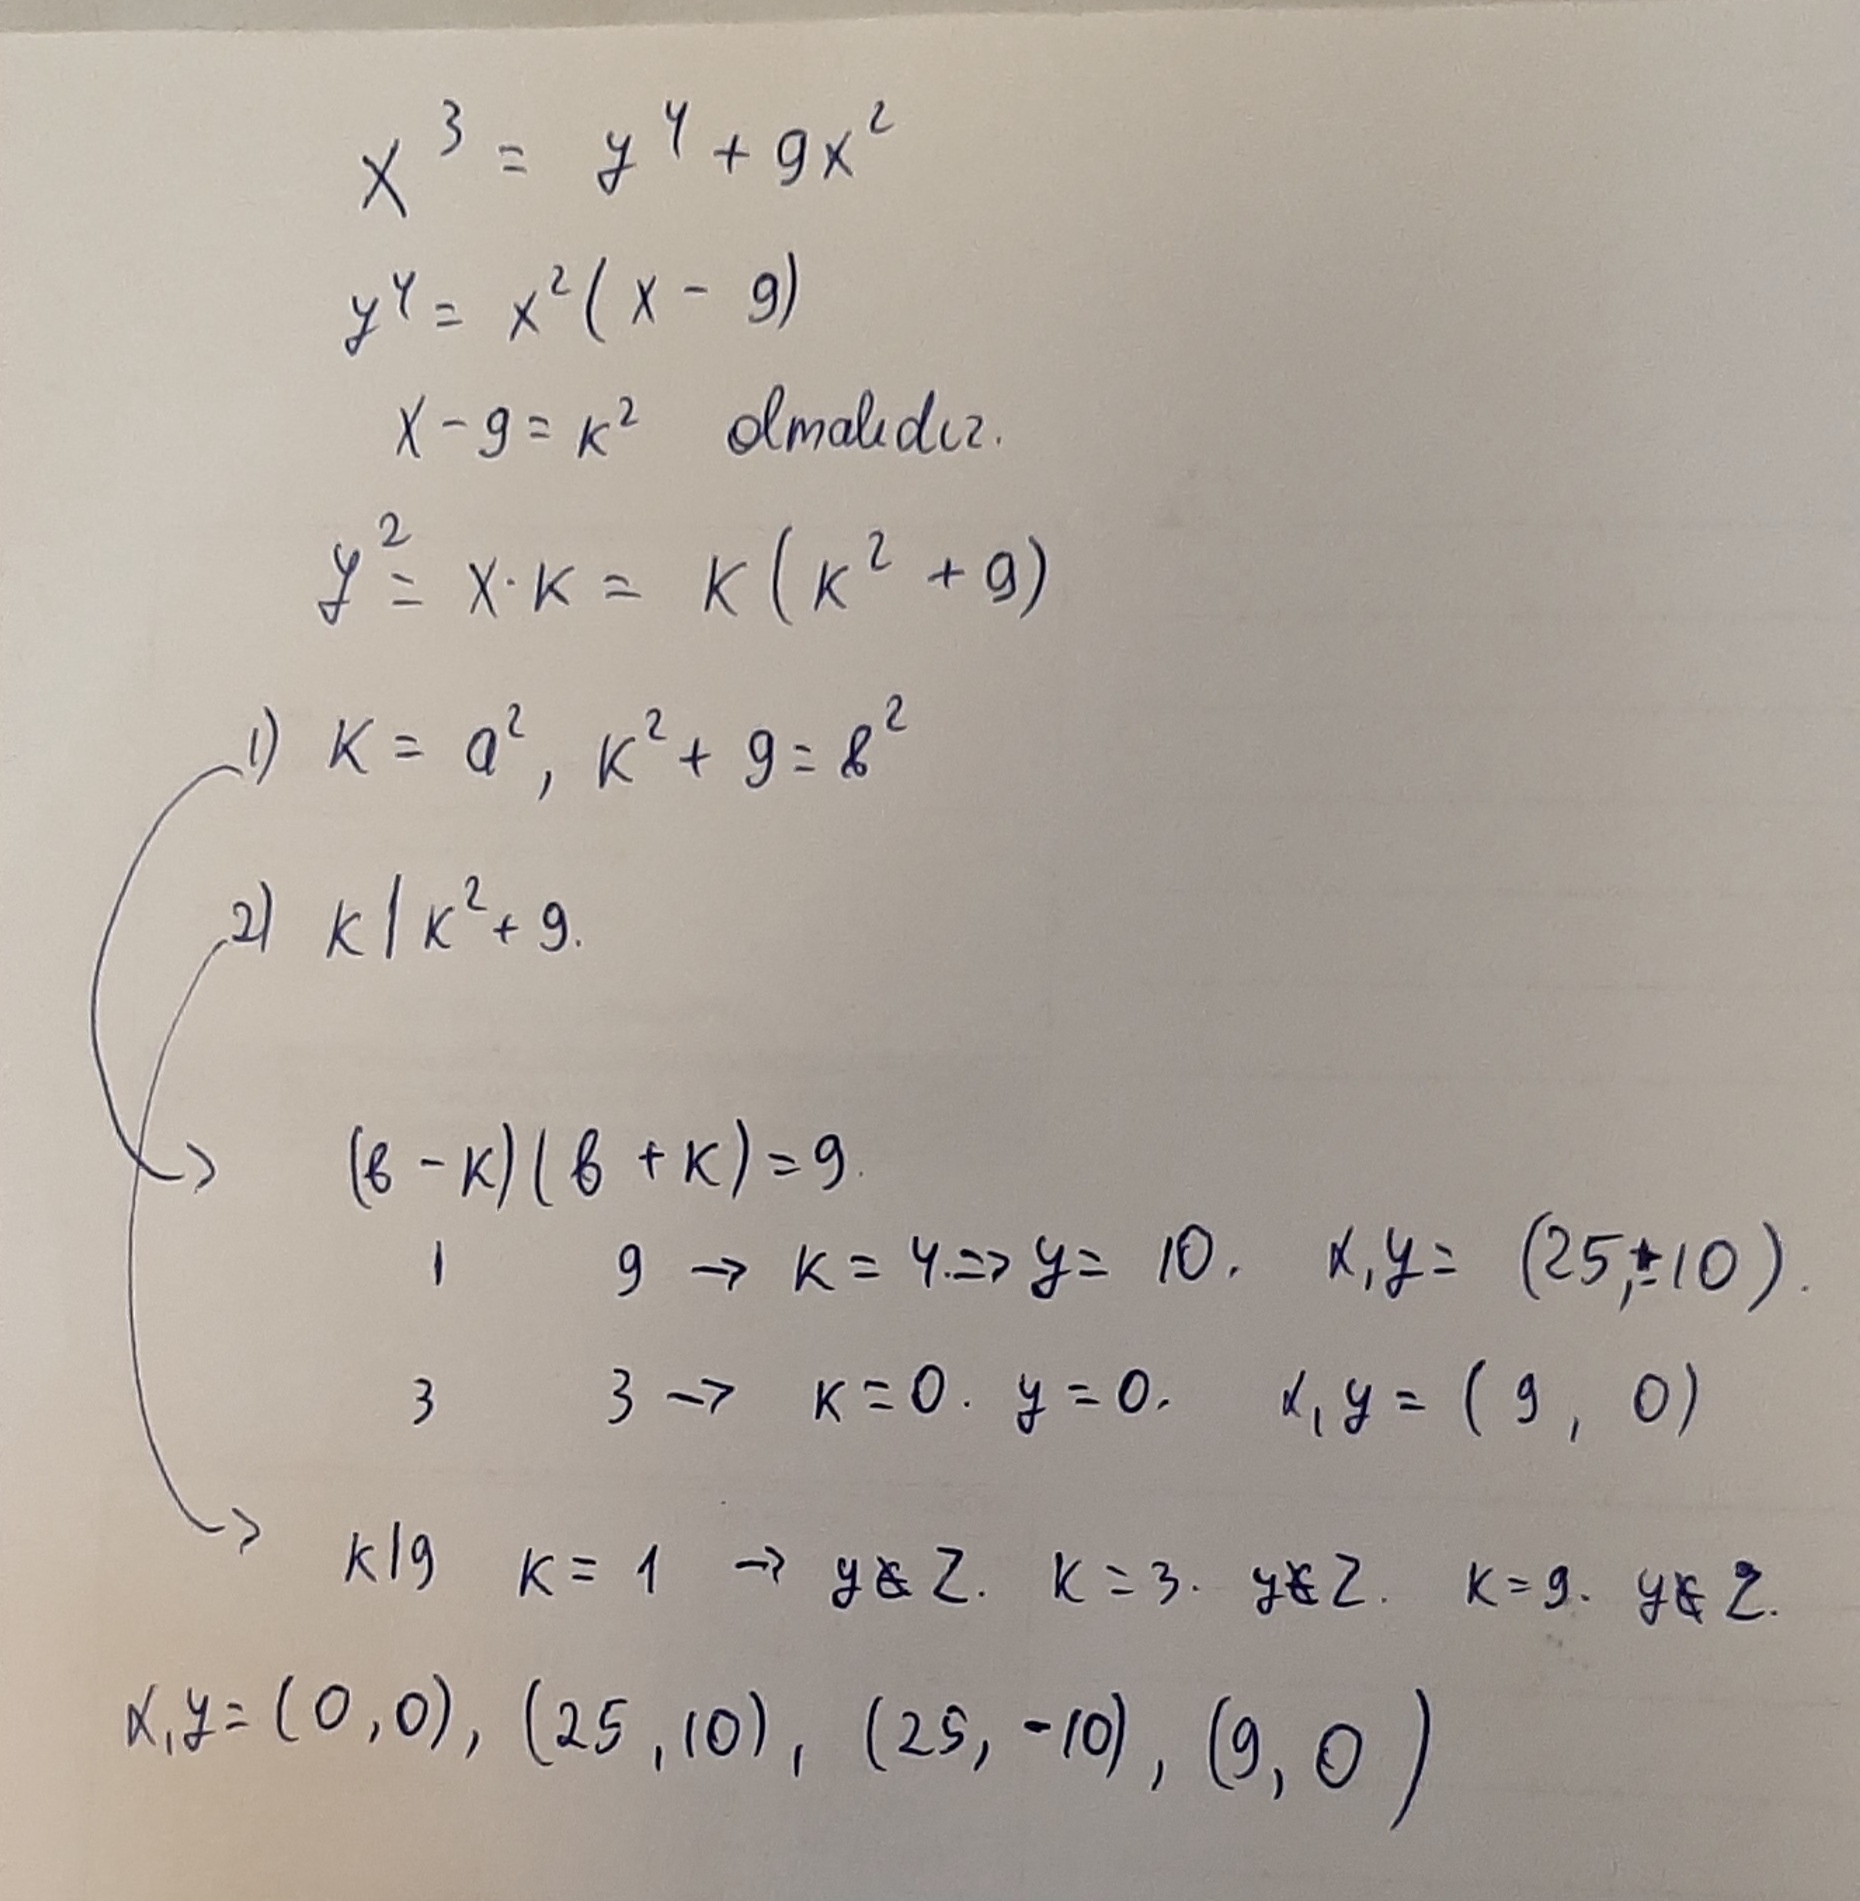 x³ = y⁴ + 9x²
y⁴ = x²(x - 9)
x - 9 = k² olmalıdır.
y² = x·k = k(k² + 9)
1) k = a², k² + 9 = b²
2) k | k² + 9.
(b - k)(b + k) = 9.
1 9 → k = 4. => y = 10. x,y = (25, ±10).
3 3 → k = 0. y = 0. x,y = (9, 0)
k|9 k = 1 → y ∉ Z. k = 3. y ∉ Z. k = 9. y ∉ Z.
x,y = (0,0), (25,10), (25,-10), (9,0)